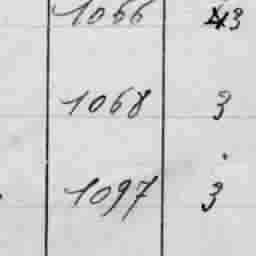 1066 3
1068 3
1097 3